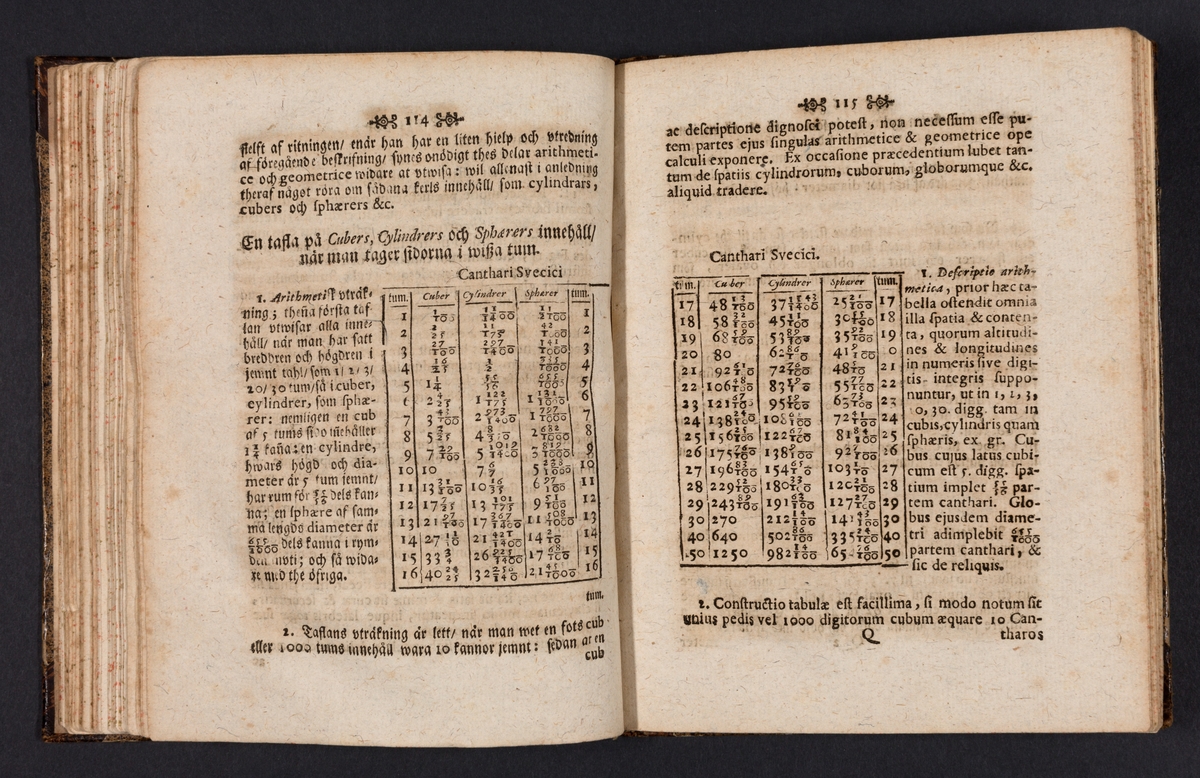 114
sielft af ritningen/ enår han har en liten hielp och vtredning
af föregående beskrifning/ synes onödigt thes delar arithmeti-
ce och geometrice widare at vtwisa: wil allenast i anledning
theraf något röra om sådana kerls innehåll/ som cylindrars,
cubers och sphærers &c.
En tafla på Cubers, Cylindrers och Sphærers innehåll/
när man tager sidorna i wißa tum.
Canthari Svecici
1. Arithmetisk vträk-
ning; theña första taf-
lan vtwisar alla inne-
håll/ när man har satt
bredden och högden i
jemnt tahl/ som 1/ 2/ 3/
20/ 30 tum/ så i cuber,
cylindrer, som sphæ-
rer: nemligen en cub
af 5 tums sido iñehåller
1 1/4 kaña: en cylindre,
hwars högd och dia-
meter är 5 tum jemnt/
har rum för 55/56 dels kan-
na; en sphære af sam-
ma lengds diameter är
655/1000 dels kanna i rym-
den noti; och så wida-
re med the öfriga.
tum. Cuber Cylindrer Sphærer tum.
1 1/100 11/1400 1
2 2/25 11/175 42/1000 2
3 27/100 297/1400 141/1000 3
4 16/25 1/2 335/1000 4
5 1 1/4 55/56 655/1000 5
2 4/25 1 122/175 6
7 3 43/100 1 797/1000 7
8 5 3/25 2 682/1000 8
9 7 29/100 5 1019/1400 3 819/1000 9
10 10 7 6/7 10
11 13 31/100 10 16/35 6 97/100 11
12 17 7/25 13 101/175 9 51/100 12
13 21 97/100 17 367/1400 13
14 27 11/25 21 14 14
15 33 3/4 26 925/1400 17 68/100 15
16 40 24/25 32 21 16
tum.
2. Taflans vträkning är lett/ när man wet en fots cub
eller 1000 tums innehåll wara 10 kannor jemnt: sedan at en
cub
115
ac descriptione dignosci potest, non necessum esse pu-
tem partes ejus singulas arithmetice & geometrice ope
calculi exponere. Ex occasione præcedentium lubet tan-
tum de spatiis cylindrorum, cuborum, globorumque &c.
aliquid tradere.
Canthari Svecici.
tum. Cuber Cylindrer Sphærer tum.
17 48 13/100 37 25 17
18 58 32/100 45 30 18
19 68 59/100 53 35 92/100 19
20 80 62 86/100 41
21 92 61/100 72 48 21
22 106 48/100 83 55 77/100 22
23 121 67/100 95 63 73/100 23
24 138 24/100 72 41/100 24
25 156 25/100 122 81 25
26 175 76/100 138 92 26
27 196 83/100 154 103 27
28 229 52/100 180 120 28
29 243 89/100 191 127 29
30 270 212 14/100 30
40 640 502 86/100 335 40
50 1250 982 14/100 50
1. Descriptio arith-
metica, prior hæc ta-
bella ostendit omnia
illa spatia & conten-
ta, quorum altitudi-
nes & longitudines
in numeris sive digi-
tis integris suppo-
nuntur, ut in 1, 2, 3,
0, 30. digg. tam in
cubis, cylindris quam
sphæris, ex gr. Cu-
bus cujus latus cubi-
cum est 5. digg. spa-
tium implet 55/56 par-
tem canthari. Glo-
bus ejusdem diame-
tri adimplebit 655/1000
partem canthari, &
sic de reliquis.
2. Constructio tabulæ est facillima, si modo notum sit
unius pedis vel 1000 digitorum cubum æquare 10 Can-
Q tharos